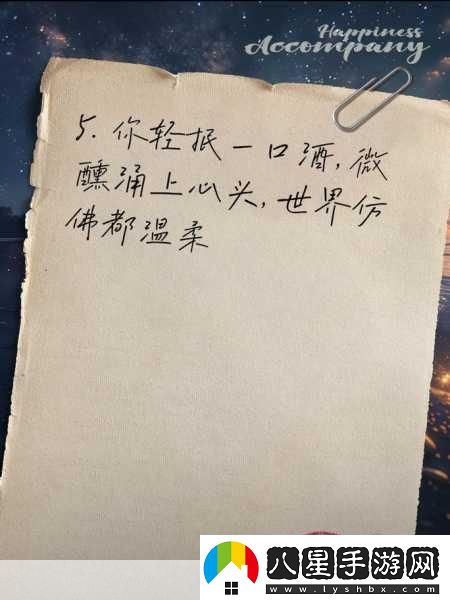 Happiness
Accompany
5. 你轻抿一口酒, 微
醺涌上心头, 世界仿
佛都温柔
八星手游网
www.lyshbx.com